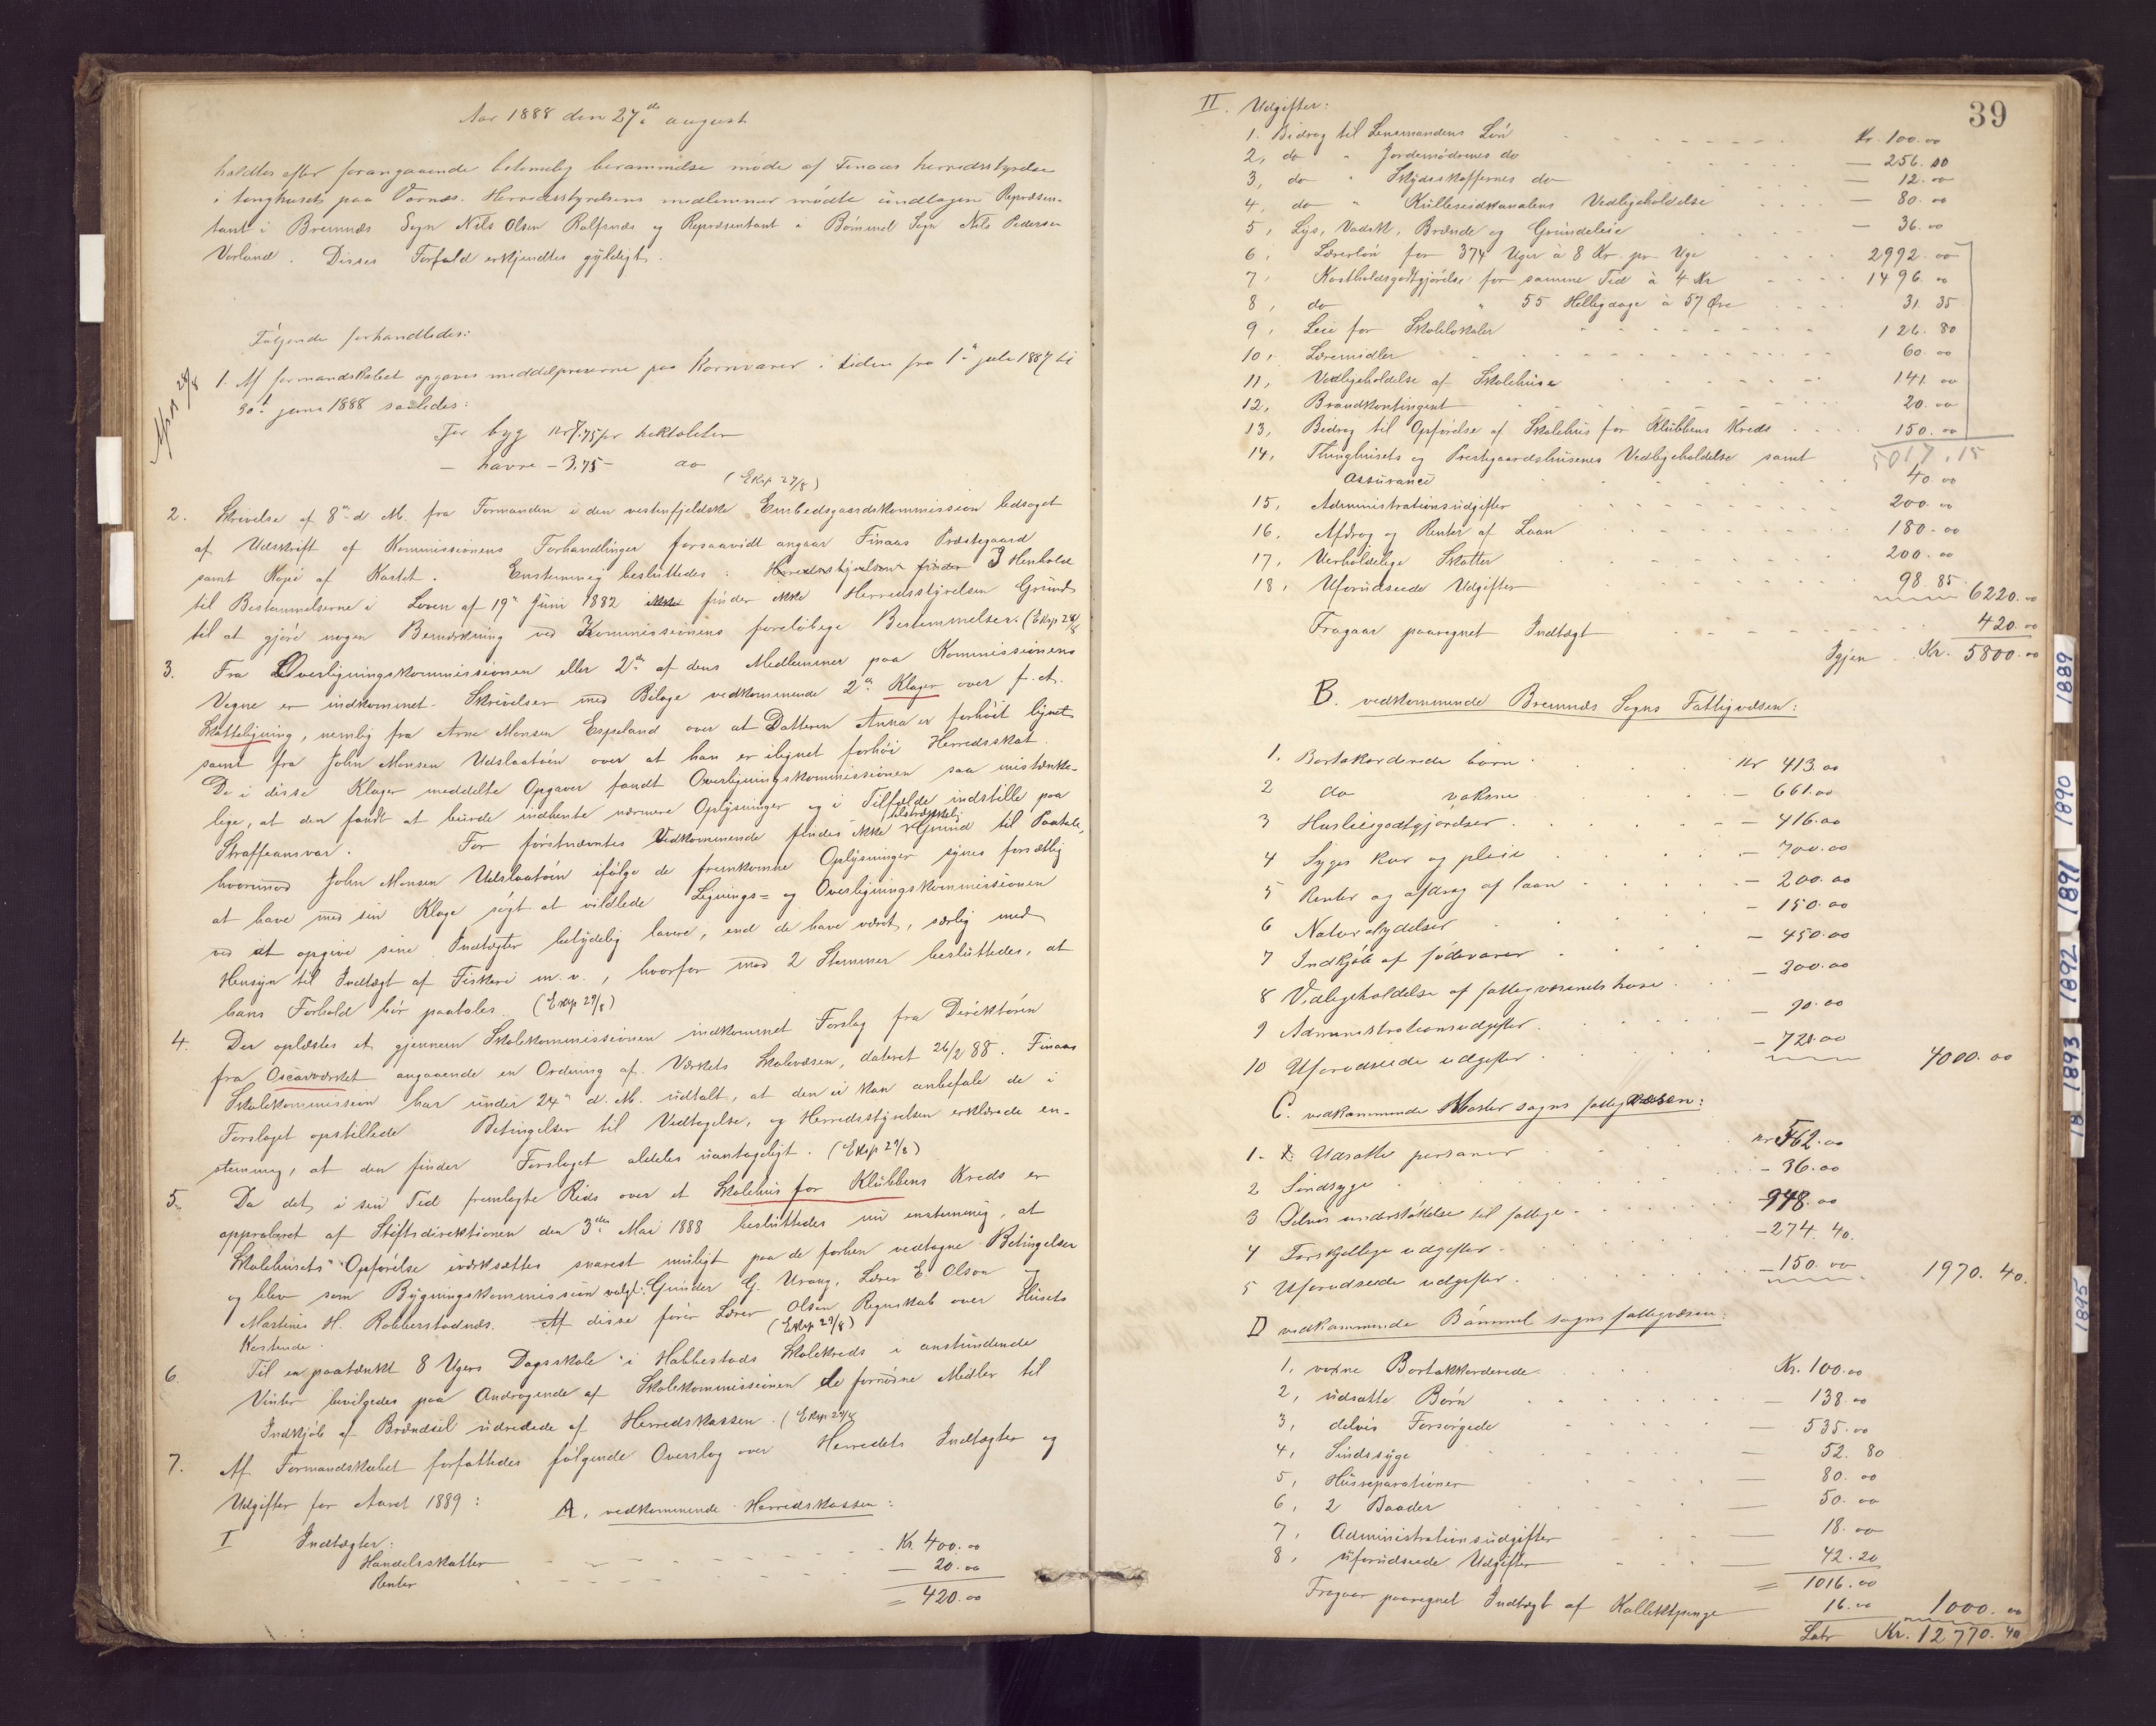 Aar 1888 den 27de august
holdtes efter forangaaende betimelig berammelse møde af Finaas herredsstyrelse
i tinghuset paa Vornæs. Herredsstyrelsens medlemmer mødte undtagen Repræsen-
tant i Bremnæs Sogn Nils Olsen Rolfsnæs og Repræsentant i Bømmel Sogn Nils Pedersen
Vorland. Disses Forfald erkjendtes gyldigt.
Følgende forhandledes:
28/8
1. Af formandskabet opgaves middelpriserne paa Kornvarer i tiden fra 1ste juli 1887 til
30te juni 1888 saaledes:
For byg Kr 7.75 pr hektoliter
— havre — 3,75 — do
(Eksp 27/8)
2. Skrivelse af 8de d. M. fra Formanden i den vestenfjeldske Embedsgaardskommission ledsaget
af Udskrift af Kommissionens Forhandlinger forsaavidt angaar Finaas Præstegaard
samt Kopi af Kartet. Enstemmig besluttedes: Herredsstyrelsen finder I Henhold
til Bestemmelserne i Loven af 19de Juni 1882 ikke finder ikke Herredsstyrelsen Grund
til at gjøre nogen Bemærkning ved Kommissionens foreløbige Bestemmelser. (Eksp 28/8
3. Fra Overligningskommissionen eller 2de af dens Medlemmer paa Kommissionens
Vegne er indkommet Skrivelser med Bilage vedkommende 2de Klager over f. A.
Skatteligning, nemlig fra Arne Monsen Espeland over at Datteren Anna er forhøit lignet
samt fra John Monsen Udslaatøen over at han er ilignet forhøi Herredsskat.
De i disse Klager meddelte Opgaver fandt Overligningskommissionen saa mistænke-
lige, at den fandt at burde indhente nærmere Oplysninger og i Tilfælde indstille paa
Straffeansvar. For førstnævntes Vedkommende findes ikke tilstrækkelig Grund til Paatale,
hvorimod John Monsen Udslaatøen ifølge de fremkomne Oplysninger synes forsætlig
at have med sin Klage søgt at vildlede Lignings- og Overligningskommissionen
ved at opgive sine Indtægter betydelig lavere, end de have været, særlig med
Hensyn til Indtægt af Fiskeri m. v., hvorfor med 2 Stemmer besluttedes, at
hans Forhold bør paatales. (Eksp 29/8)
4. Der oplæstes et gjennem Skolekommissionen indkommet Forslag fra Direktøren
fra Oscarværket angaaende en Ordning af Værkets Skolevæsen, dateret 26/2 88. Finaas
Skolekommission har under 24de d. M. udtalt, at den ei kan anbefale de i
Forslaget opstillede Betingelser til Vedtagelse, og Herredsstyrelsen erklærede en-
stemmig, at den finder Forslaget aldeles uantageligt. (Eksp 29/8)
5. Da det i sin Tid fremlagte Rids over et Skolehus for Klubbens Kreds er
approberet af Stiftsdirektionen den 3die Mai 1888 besluttedes nu enstemmig, at
Skolehusets Opførelse iværksættes snarest muligt paa de forhen vedtagne Betingelser
og blev som Bygningskommission valgt: Gunder G. Urang, Lærer E. Olson og
Martinus H. Robberstadnæs. Af disse fører Lærer Olsen Regnskab over Husets
Kostende. (Eksp 29/8)
6. Til en paatænkt 8 Ugers Dagsskole i Habbestads Skolekreds i anstundende
Vinter bevilgedes paa Andragende af Skolekommissionen de fornødne Midler til
Indkjøb af Brændsel udredede af Herredskassen. (Eksp 29/8
7. Af Formandskabet forfattedes følgende Overslag over Herredets Indtægter og
Udgifter for Aaret 1889:
A, vedkommende Herredskassen:
I Indtægter:
Handelsskatter Kr. 400.00
Renter — 20.00
= 420.00
39
II. Udgifter:
1. Bidrag til Lensmandens Løn Kr. 100.00
2, do " Jordemødrenes do — 256.00
3, do " Skydsskaffernes do — 12.00
4, do " Kulleseidkanalens Vedligeholdelse — 80.00
5, Lys, Vadsk, Brænde og Grundeleie — 36.00
6, Lærerløn for 374 Uger à 8 Kr. pr Uge 2992.00
7, Kostholdsgodtgjørelse for samme Tid à 4 Kr 1496.00
8, do " 55 Helligdage à 57 Øre 31.35
9, Leie for Skolelokaler 126.80
10, Læremidler 60.00
11, Vedligeholdelse af Skolehuse 141.00
12, Brandkontingent 20.00
13, Bidrag til Opførelse af Skolehus for Klubbens Kreds 150.00
5017,15
14, Thinghusets og Prestgaardshusenes Vedligeholdelse samt
Assurance 40.00
15, Administrationsudgifter 200.00
16, Afdrag og Renter af Laan 180.00
17, Uerholdelige Skatter 200.00
18, Uforudseede Udgifter 98.85 6220.00
Fragaar paaregnet Indtægt 420.00
Igjen Kr. 5800.00
B. vedkommende Bremnæs Sogns Fattigvæsen:
1. Bortakorderede børn Kr 413.00
2 do voksne — 661.00
3 Husleiegodtgjørelser — 416.00
4 Syges kur og pleie — 700.00
5 Renter og afdrag af laan — 200.00
6 Naturalydelser — 150.00
7 Indkjøb af fødevarer — 450.00
8 Vedligeholdelse af fattigvæsenets huse — 200.00
9 Administrationsudgifter — 90.00
10 Uforudseede udgifter — 720.00 4000.00
C. vedkommende Moster sogns fattigvæsen:
1. Udsatte personer Kr 562.00
2 Sindsyge — 36.00
3 Delvis understøttelse til fattige — 948.00
4 Forskjellige udgifter — 274.40.
5 Uforudseede udgifter — 150.00 1970.40.
D vedkommende Bømmel sogns fattigvæsen:
1, voxne Bortakkorderede Kr. 100.00
2, udsatte Børn — 138.00
3, delvis Forsørgede — 535.00
4, Sindssyge — 52.80
5, Husreparationer — 80.00
6, 2 Baader — 50.00
7, Administrationsudgifter — 18.00
8, uforudseede Udgifter — 42.20
= 1016.00
Fragaar paaregnet Indtægt af Kollektpenge 16.00 1000.00
Latr Kr. 12770.40
1889
1890
1891
1892
1893
18
1895